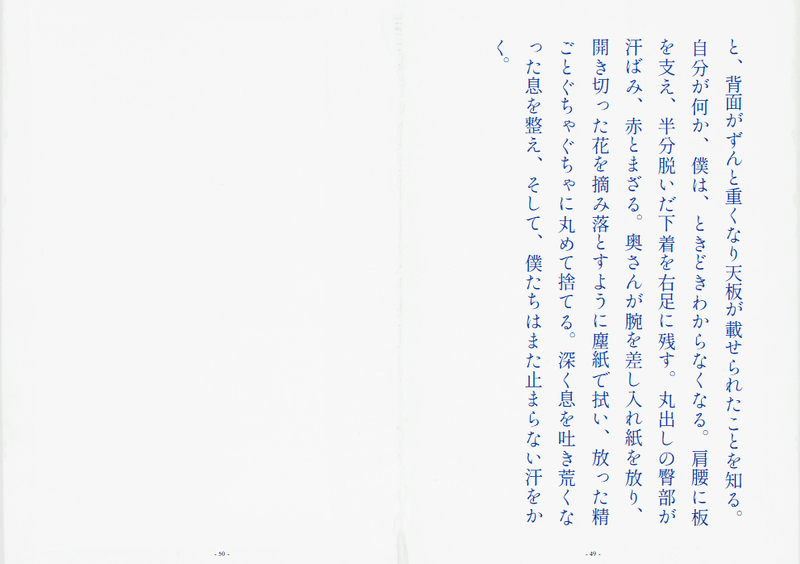 と、背面がずんと重くなり天板が載せられたことを知る。
自分が何か、僕は、ときどきわからなくなる。肩腰に板
を支え、半分脱いだ下着を右足に残す。丸出しの臀部が
汗ばみ、赤とまざる。奥さんが腕を差し入れ紙を放り、
開き切った花を摘み落とすように塵紙で拭い、放った精
ごとぐちゃぐちゃに丸めて捨てる。深く息を吐き荒くな
った息を整え、そして、僕たちはまた止まらない汗をか
く。
- 49 -
- 50 -